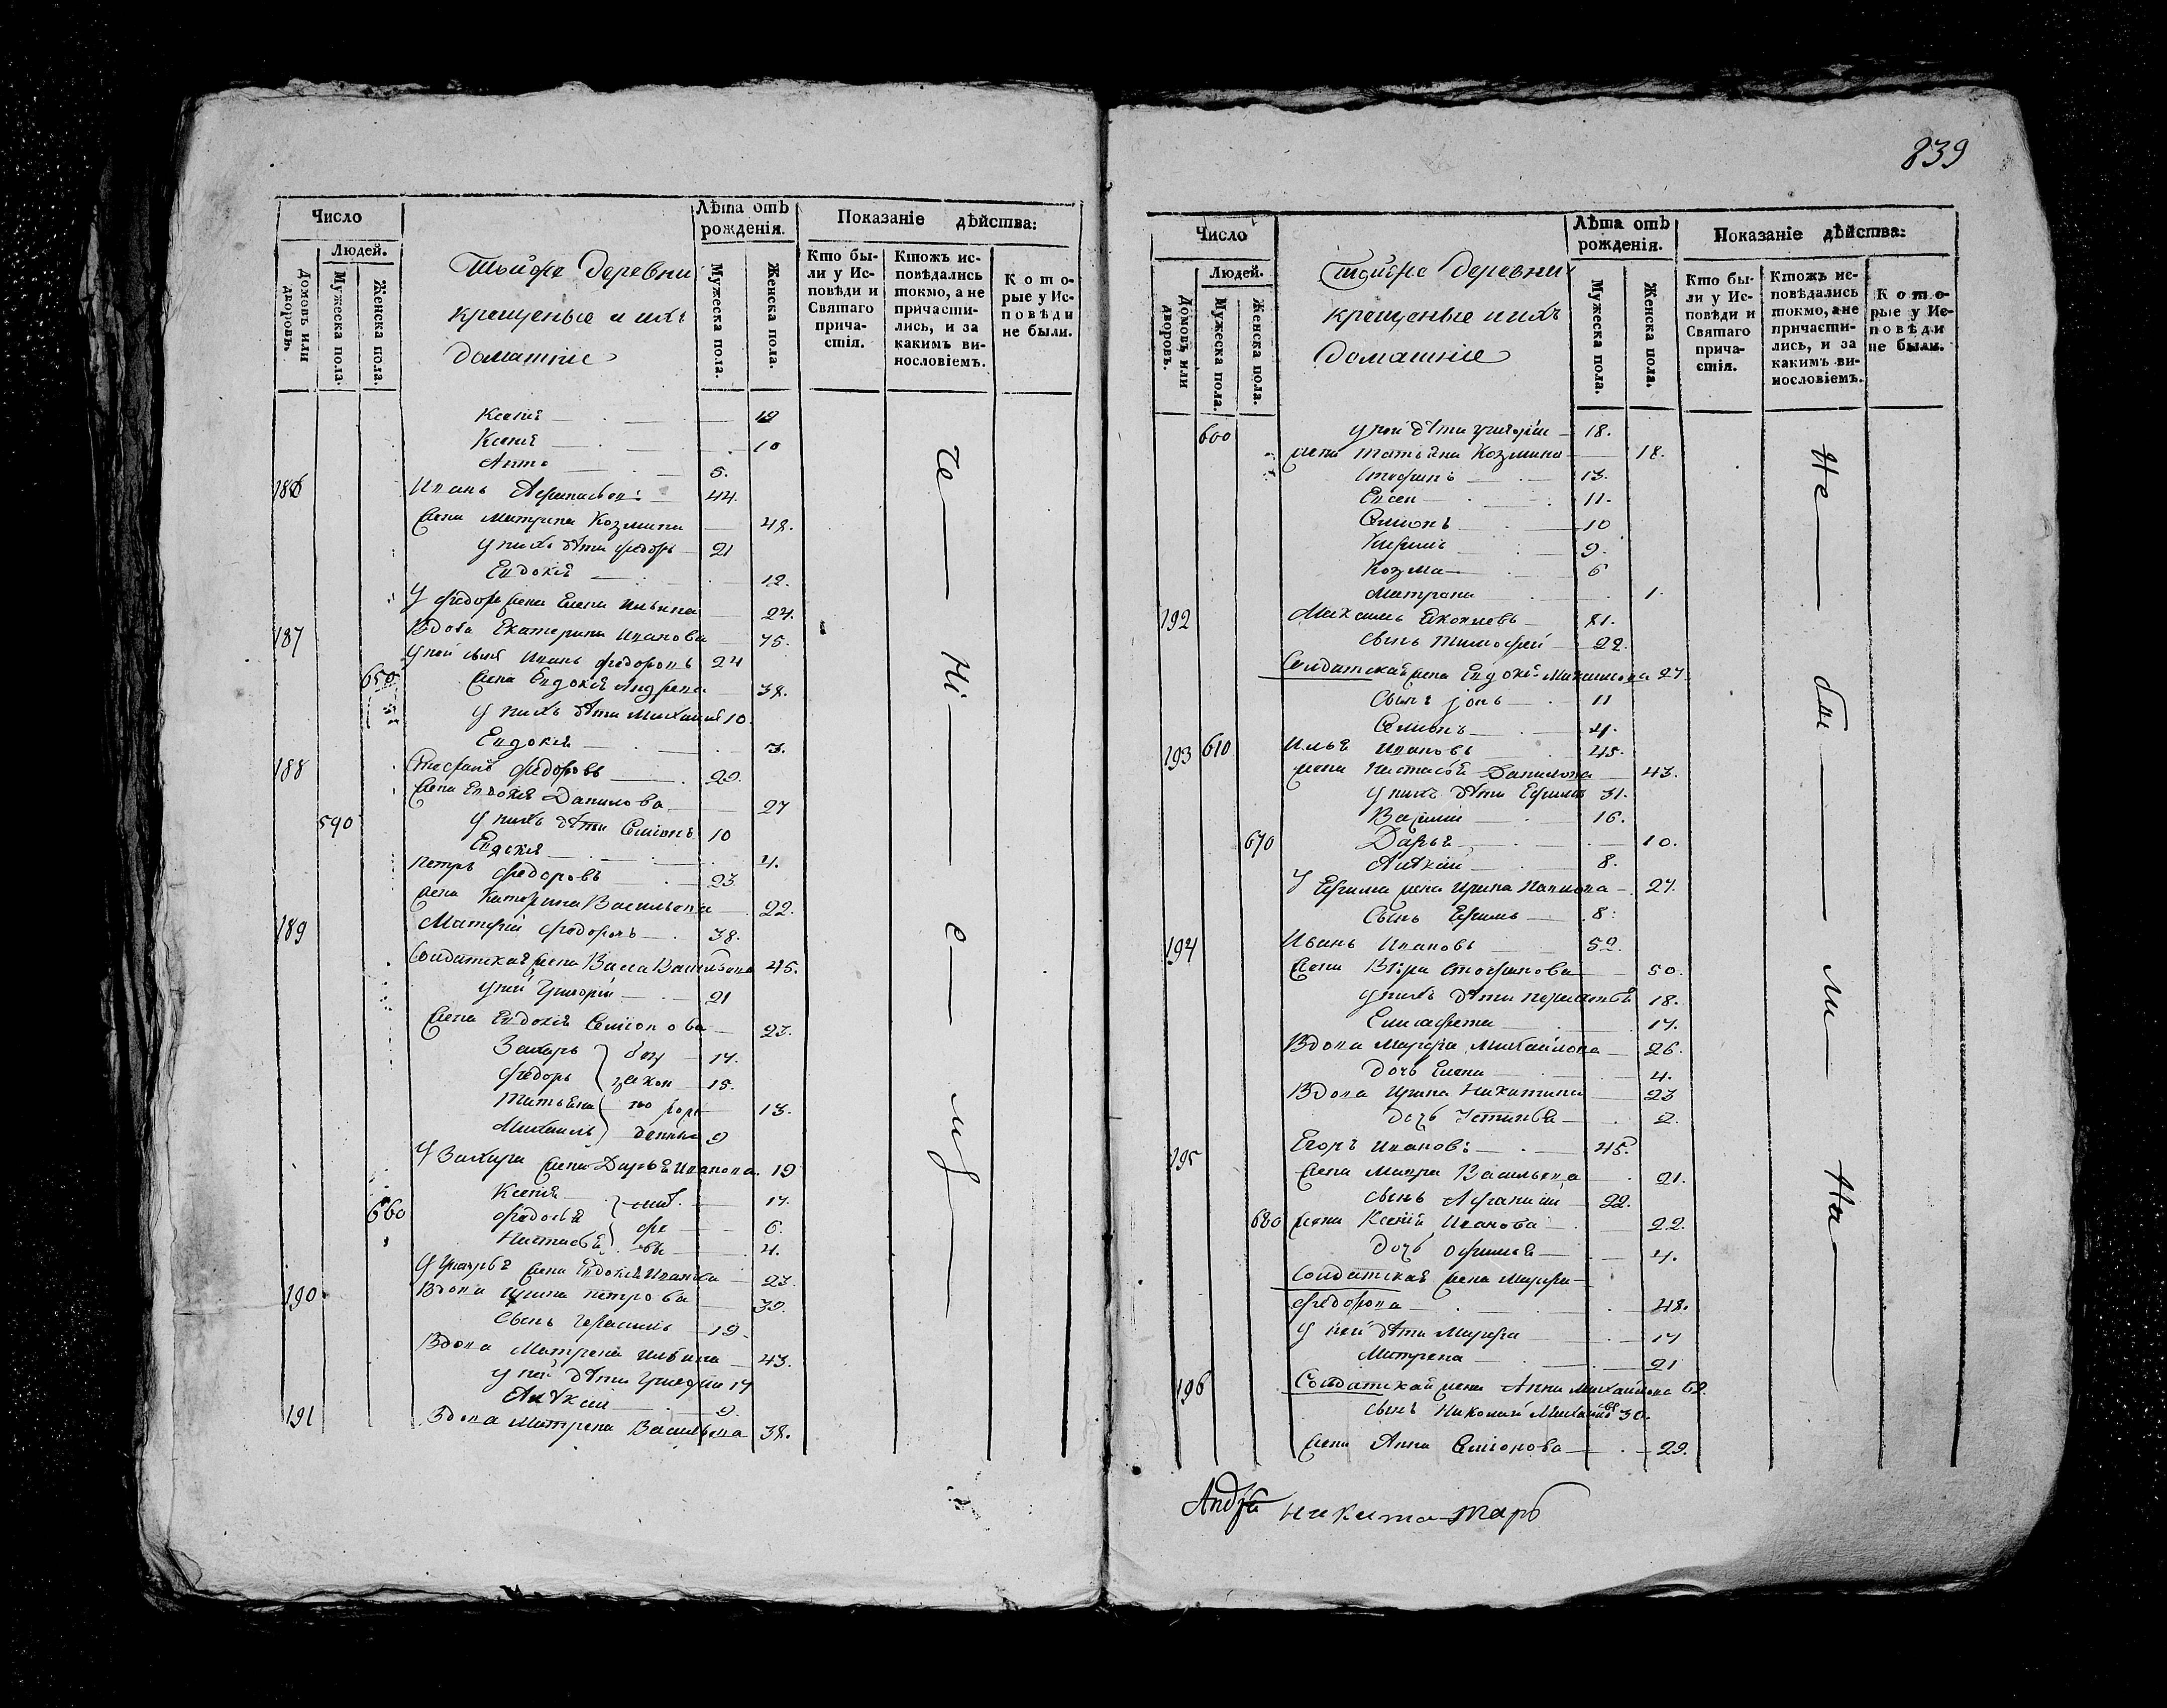 Число
Людей.
Домовъ или дворовъ.
Мужеска пола.
Женска пола.
Тойже деревни
крещеные и ихъ
домашніе
Лѣта отъ рожденія.
Мужеска пола.
Женска пола.
Показаніе дѣйства:
Кто были у Исповѣди и Святаго причастія.
Ктожъ исповѣдались токмо, а не причастились, и за какимъ винословіемъ.
Которые у Исповѣди не были.
Ксенія 19
Ксенія 10
186 Иванъ 44.
жена Матрена Козмина 48.
у нихъ дѣти Федоръ 21
Евдокія 12.
У Федора жена Елена Ильина 24.
187 Вдова Екатерина Иванова 75.
у ней сынъ Иванъ Федоровъ 24
650 жена Евдокія Андрева 38.
у нихъ дѣти Михаилъ 10.
Евдокія 3.
188 Стефанъ Федоровъ 29.
жена Евдокія Данилова 27
590 у нихъ дѣти Семіонъ 10
Евдокія 4.
Петръ Федоровъ 23
жена Катерина Васильева 22.
189 Матфій Федоровъ 38.
Солдатская жена Васса Васильева 45.
у ней Григорій 21
жена Евдокія Семіонова 23.
Захаръ 17.
Федоръ 15.
Татьяна 13.
Михаилъ 9
У Захара жена Дарья Иванова 19
Ксенія 17.
660 Федосья 6.
Настасья 4.
жена Евдокія Иванова 23
190 Вдова Ирина Петрова 39.
Сынъ Герасимъ 19.
Вдова Матрена Ильина 43.
у ней дѣти Григорій 17
Алѣксій 9.
191 Вдова Матрена Васильева 38.
839
Число
Людей.
Домовъ или дворовъ.
Мужеска пола.
Женска пола.
Тойже деревни
крещеные и ихъ
домашніе
Лѣта отъ рожденія.
Мужеска пола.
Женска пола.
Показаніе дѣйства:
Кто были у Исповѣди и Святаго причастія.
Ктожъ исповѣдались токмо, а не причастились, и за какимъ винословіемъ.
Которые у Исповѣди не были.
Не бы ли На
600 у ней дѣти Григорій 18.
жена Татьяна Козмина 18.
Стефанъ 13.
Евсей 11.
Семіонъ 10
9.
Козма 6
Матрена 1.
192 Михаилъ
сынъ Тимофей 22.
Солдатская жена Евдокія Михаилова 27.
Сынъ Іонъ 11
Семіонъ 4.
193 610 Илья Ивановъ 45.
жена Настасья Данилова 43.
у нихъ дѣти Ефимъ 31.
Василій 16.
670 Дарья 10.
Алѣксій 8.
У Ефима жена Ирина 27.
Сынъ Ефимъ 8.
194 Иванъ Ивановъ 52.
жена Вѣра Стефанова 50.
у нихъ дѣти 18.
Елисавета 17.
Вдова Марфа Михайлова 26.
дочь Елена 4.
Вдова Ирина Никитина 23
дочь Устинья 2.
195 Егоръ Ивановъ 45.
жена Мавра Васильева 21.
сынъ Афанасій 22.
680 жена Ксенія Иванова 22.
дочь Офимья 4.
Солдатская жена Марфа
Федорова 48.
у ней дѣти Марфа 17
Матрена 21
196 Солдатская жена Анна Михайлова 62.
сынъ Николай Михайловъ 30.
жена Анна Семіонова 29.
Андрей Никита